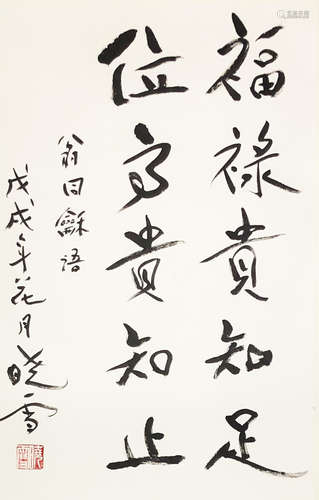 福禄貴知足
位高貴知止
翁同龢语
戊戌年花月曉雪